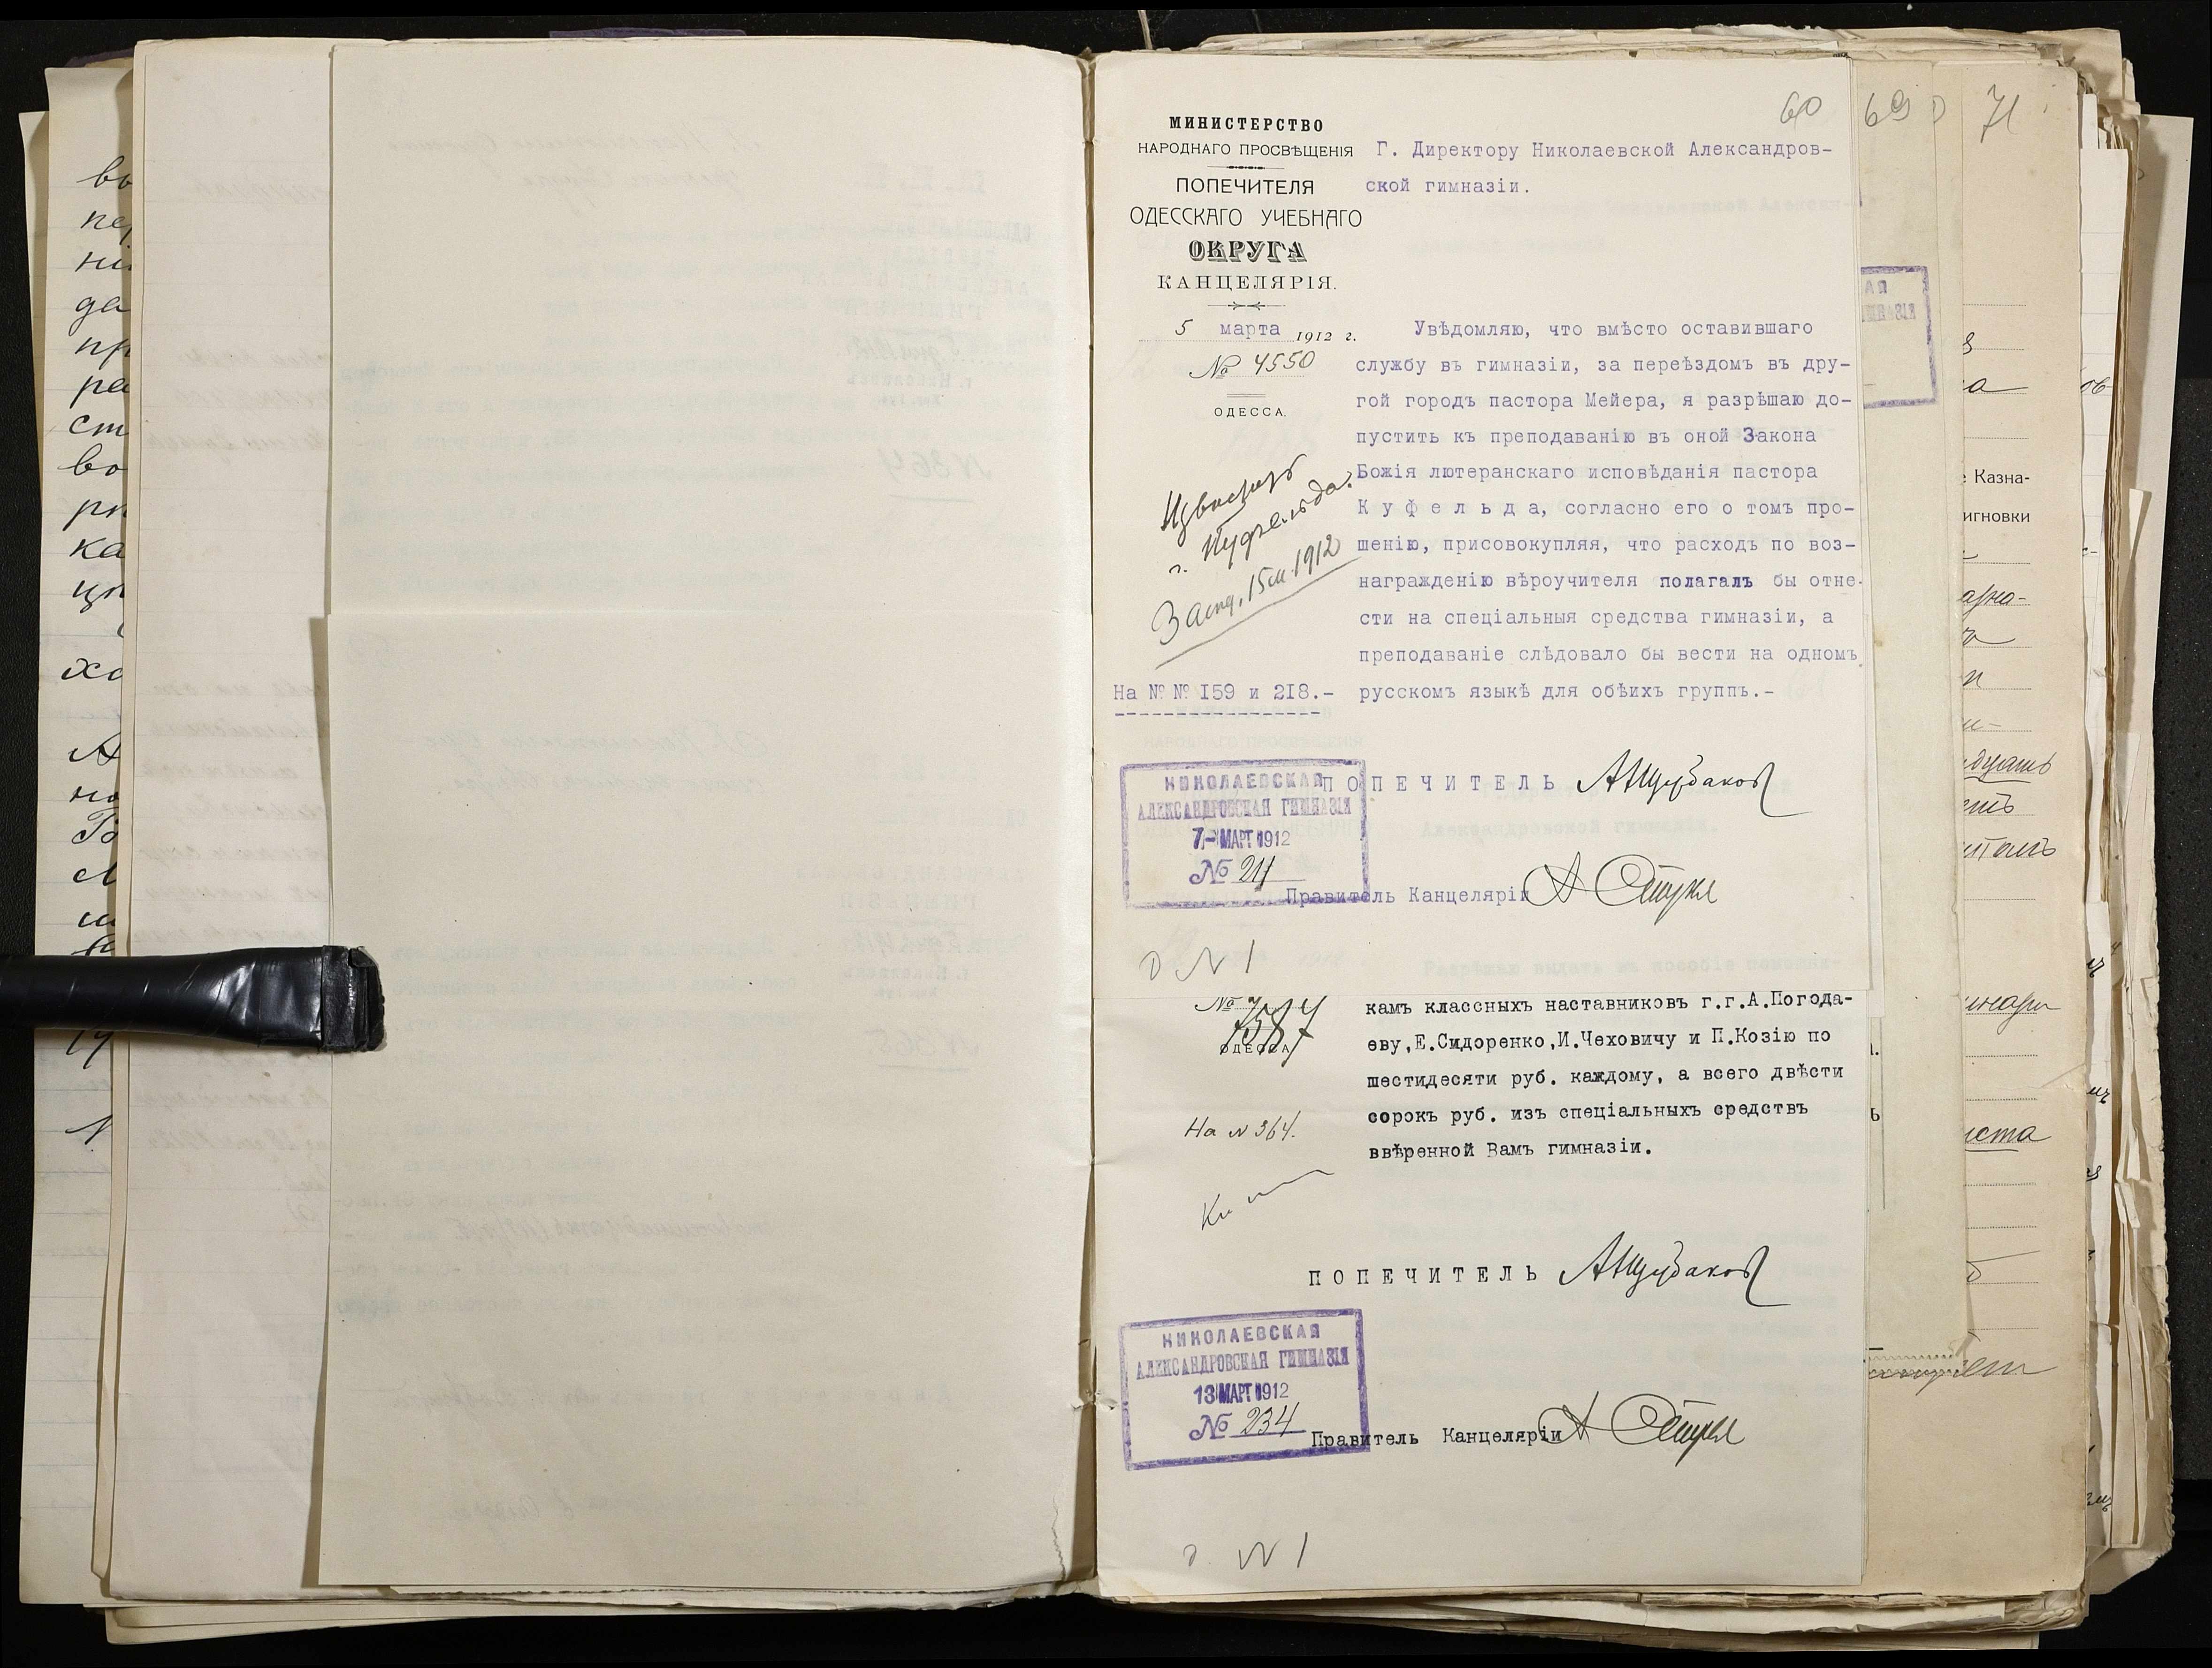 60
69
71
МИНИСТЕРСТВО
НАРОДНАГО ПРОСВѢЩЕНІЯ
ПОПЕЧИТЕЛЯ
ОДЕССКАГО УЧЕБНАГО
ОКРУГА
КАНЦЕЛЯРІЯ.
5 марта 1912 г.
№ 4550
ОДЕССА.
Г. Директору Николаевской Александров-
ской гимназіи.
Увѣдомляю, что вмѣсто оставившаго
службу въ гимназіи, за переѣздомъ въ дру-
гой городъ пастора Мейера, я разрѣшаю до-
пустить къ преподаванію въ оной Закона
Божія лютеранскаго исповѣданія пастора
Куфельда, согласно его о томъ про-
шенію, присовокупляя, что расходъ по воз-
награжденію вѣроучителя полагалъ бы отне-
сти на спеціальныя средства гимназіи, а
преподаваніе слѣдовало бы вести на одномъ
русскомъ языкѣ для обѣихъ группъ.-
г. Куфельда.
1912
На №№ 159 и 218.-
ПОПЕЧИТЕЛЬ АЩербаков
НИКОЛАЕВСКАЯ
АЛЕКСАНДРОВСКАЯ ГИМНАЗІЯ
7- МАРТ 1912
№ 211
Правитель Канцеляріи
д N 1
№ 7587
ОДЕССА
камъ классныхъ наставниковъ г.г.А.Погода-
еву,Е.Сидоренко,И.Чеховичу и П.Козію по
шестидесяти руб. каждому, а всего двѣсти
сорокъ руб. изъ спеціальныхъ средствъ
ввѣренной Вамъ гимназіи.
На N 364.
ПОПЕЧИТЕЛЬ АЩербаков
НИКОЛАЕВСКАЯ
АЛЕКСАНДРОВСКАЯ ГИМНАЗІЯ
13 МАРТ 1912
№ 234
Правитель Канцеляріи
д. N 1
Казна-
игновки